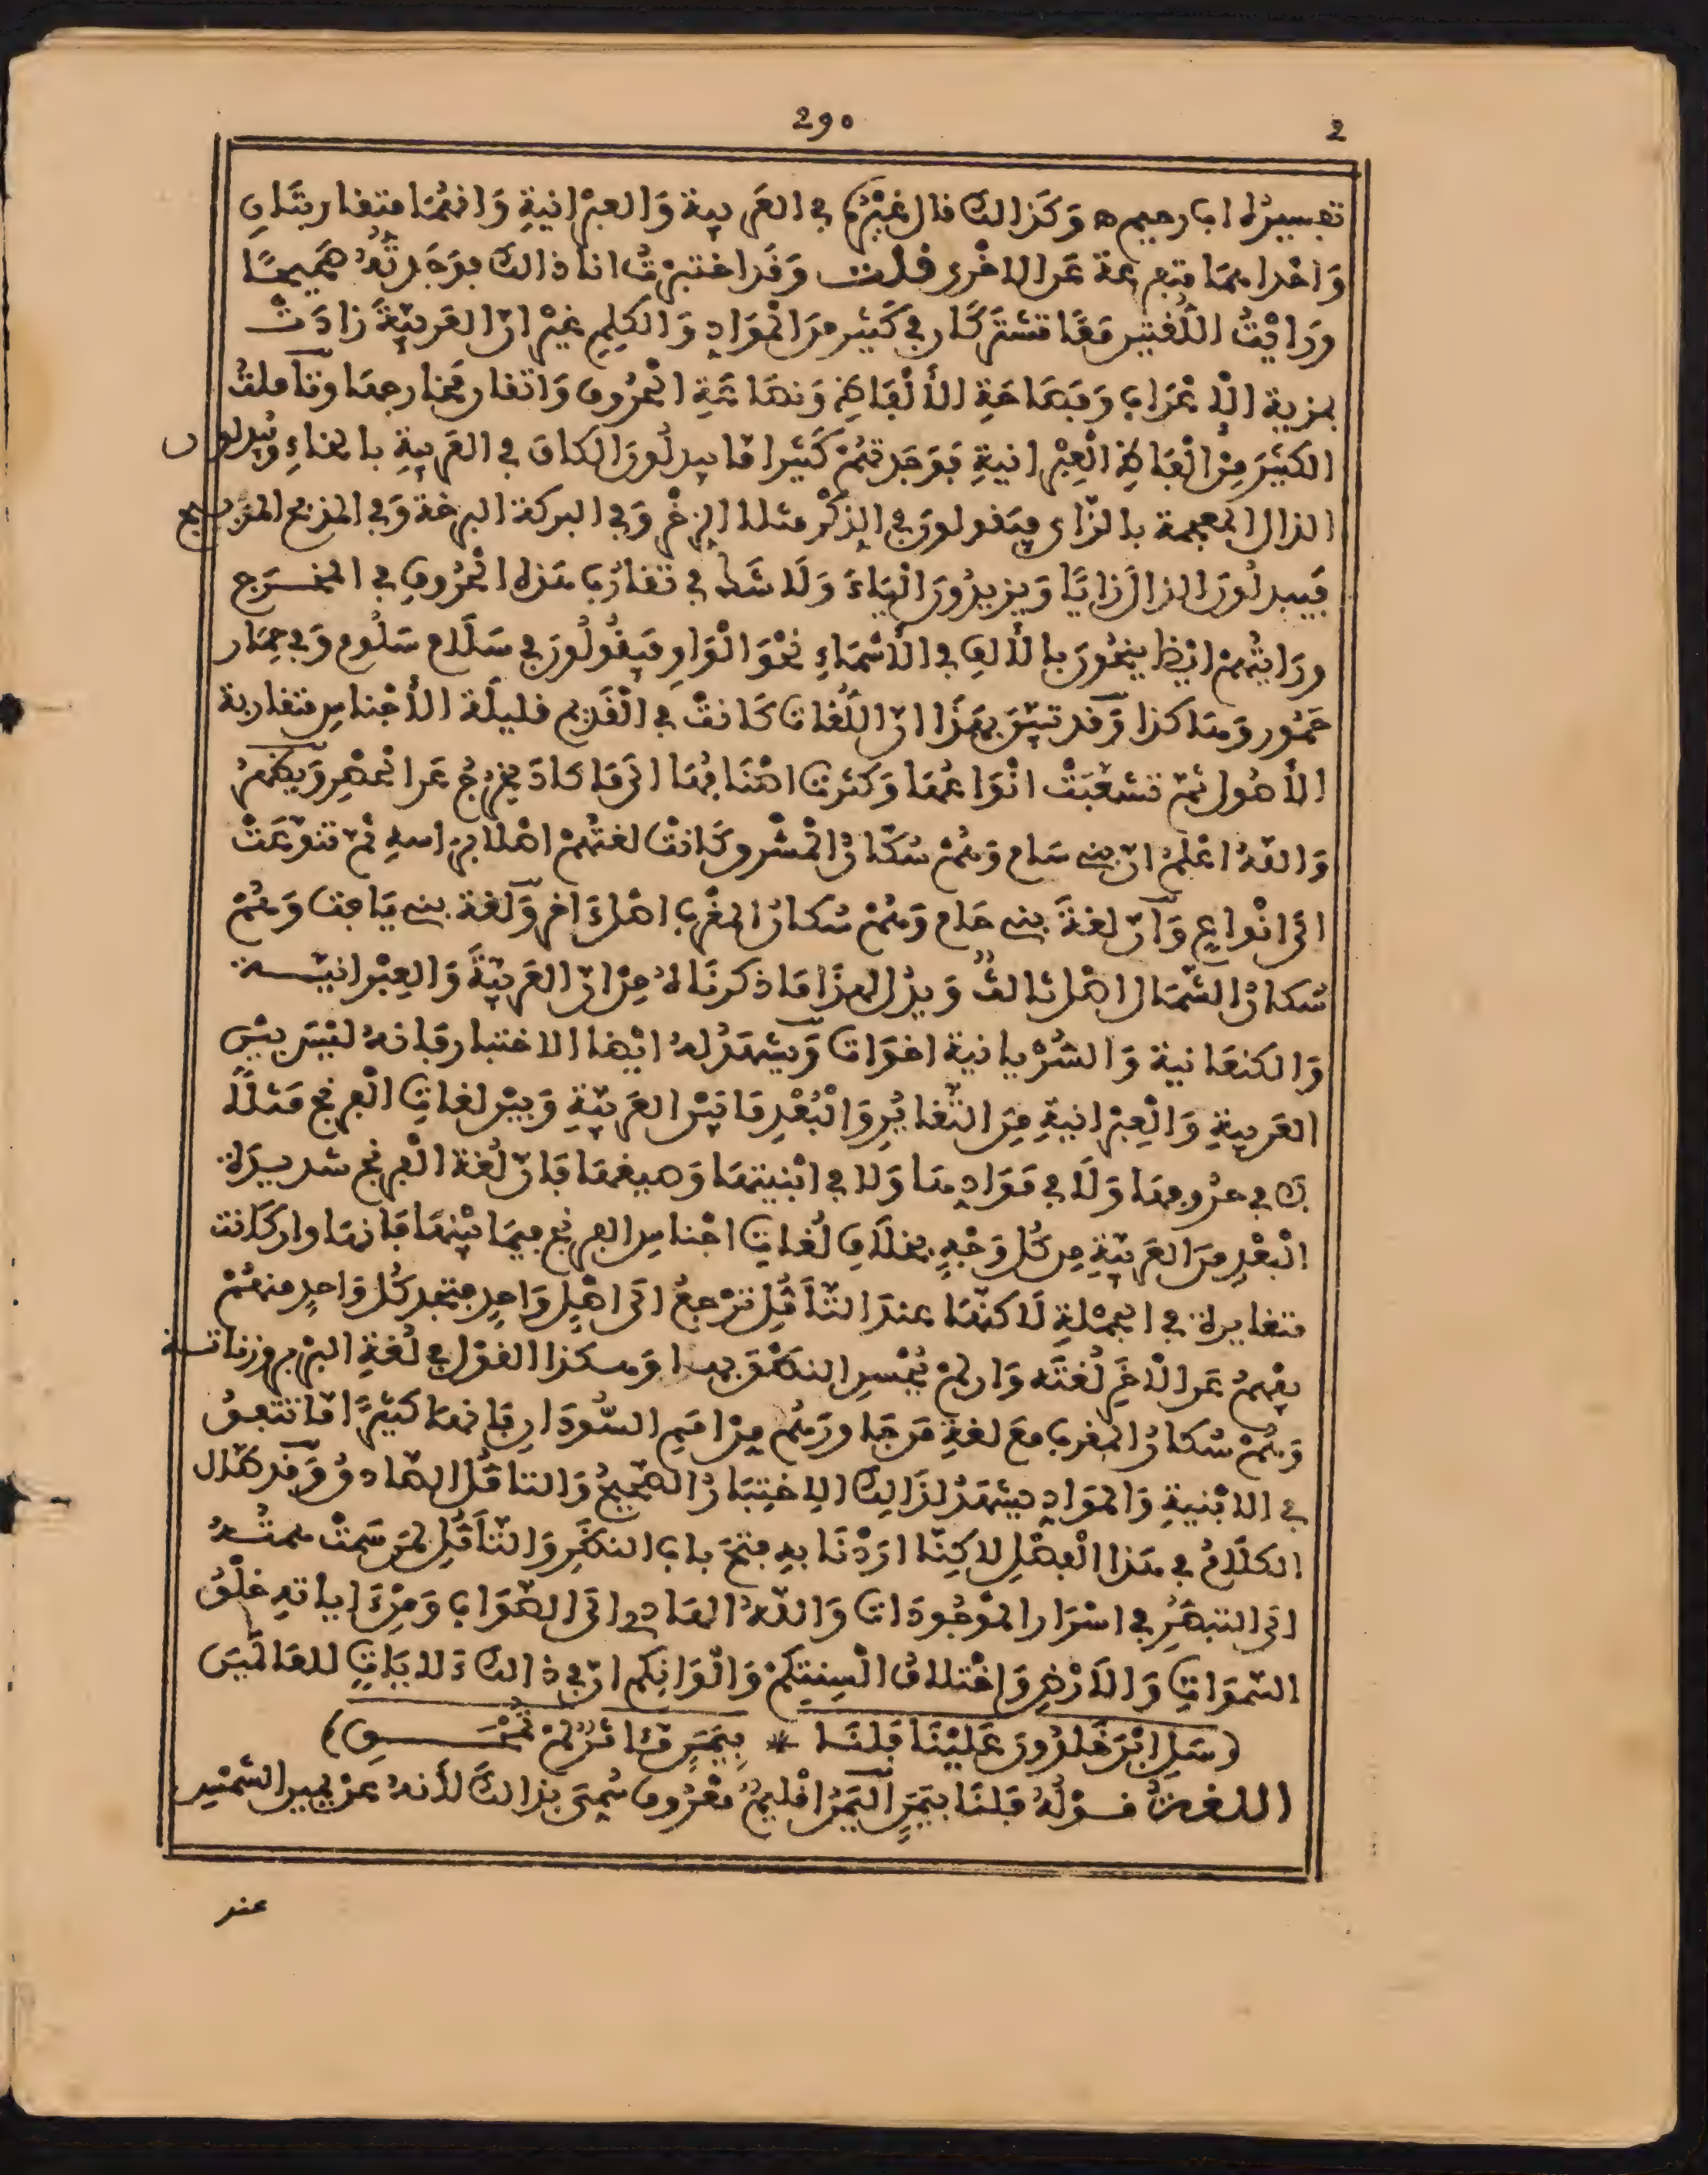 290 2
تفسيره اب رحيم ه وكذالك قال غيره في العربية والعبرانية وانهما متقاربتان
واحداهما متفرعة عن الاخرى قلت وقد اختبرت انا ذالك فوجدته صحيحا
ورايت اللغتين معا تشتركان في كثير من المواد والكلم غير ان العربية زادت
بمزية الإعراب وفصاحة الألفاظ وضخامة الحروف واتقان مخارجها وتاملت
الكثير من الفاظ العبرانية فوجدتهم كثيرا ما يبدلون الكاف في العربية بالخاء ويبدلون
الذال المعجمة بالزاي فيقولون في الذكر مثلا الزخر وفي البركة البرخة وفي المذبح المزبيح
فيبدلون الذال زايا ويزيدون الياء ولا شك في تقارب هذه الحروف في المخرج
ورايتهم ايضا ينحون بالألف في الأسماء نحو الواو فيقولون في سلام سلوم وفي حمار
حمور وهاكذا وقد تبين بهذا ان اللغات كانت في القديم قليلة الأجناس متقاربة
الأصول ثم تشعبت انواعها وكثرت اصنافها الى ما كاد يخرج عن الحصر ويظهر
والله اعلم ان بني سام وهم سكان المشرق كانت لغتهم اصلا براسه ثم تنوعت
الى انواع وان لغة بني حام وهم سكان المغرب اصل ءاخر ولغة بني يافث وهم
سكان الشمال اصل ثالث ويدل لهذا ما ذكرناه من ان العربية والعبرانية
والكنعانية والسريانية اخوات ويشهد له ايضا الاختبار فإنه ليس بين
العربية والعبرانية من التغاير والبعد ما بين العربية وبين لغات الفرنج مثلا
لا في حروفها ولا في موادها ولا في ابنيتها وصيغها فان لغة الفرنج شديدة
البعد من العربية من كل وجه بخلاف لغات اجناس الفرنج فيما بينها فانها وان كانت
متغايرة في الجملة لاكنها عند التأمل ترجع الى اصل واحد فتجد كل واحد منهم
يفهم عن الاخر لغته وان لم يحسن النطق بها وهكذا القول في لغة البربر وزناتة
وهم سكان المغرب مع لغة من جاورهم من امم السودان فانها كثيرا ما تتفق
في الابنية والمواد يشهد لذالك الاختبار الصحيح والتامل الصادق وقد طال
الكلام في هذا الفصل لاكنا اردنا به فتح باب النظر والتأمل لمن سمت همته
الى التبصر في اسرار الموجودات والله الهادي الى الصواب ومن ءاياته خلق
السموات والأرض واختلاف السنتكم والوانكم ان في ذالك ءلايات للعالمين
(سل ابن خلدون علينا فلنا * بيمن مئاثر لم تحص)
اللغة قوله فلنا بيمن اليمن اقليم معروف سمي بذالك لأنه عن يمين الشمس
عند